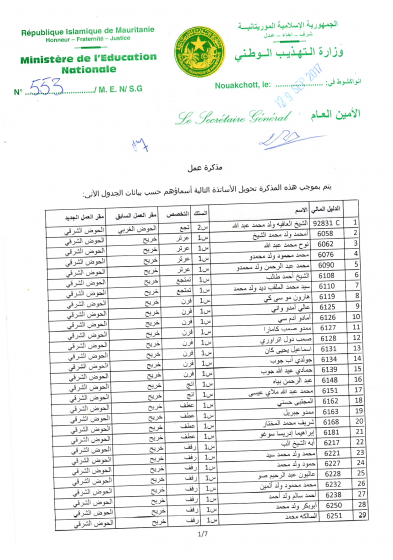 République Islamique de Mauritanie
Honneur – Fraternité – Justice
Ministère de l'Education
Nationale
N° 553 /M. E. N/ S.G
الجمهورية الإسلامية الموريتانية
شرف - إخاء - عدل
وزارة التهذيب الوطني
Nouakchott, le: انواكشوط في:
2017
Le Secrétaire Général الأمين العام
مذكرة عمل
يتم بموجب هذه المذكرة تحويل الأساتذة التالية أسماؤهم حسب بيانات الجدول الآتي:
الدليل المالي الاسم السلك التخصص مقر العمل السابق مقر العمل الجديد
1 92831 C الشيخ العافيه ولد محمد عبد الله س2 تجع الحوض الغربي الحوض الشرقي
2 6058 أمحمد ولد محمد الشيخ س1 عرتر خريج الحوض الشرقي
3 6062 نوح محمد عبد الله س1 عرتر خريج الحوض الشرقي
4 6076 محمد محمود ولد محمدو س1 عرتر خريج الحوض الشرقي
5 6090 محمد عبد الرحمن ولد محمدو س1 عرتر خريج الحوض الشرقي
6 6108 الشيخ احمد طالب س1 تمتجع خريج الحوض الشرقي
7 6110 سيد محمد الملقب ديد ولد محمد س1 تمتجع خريج الحوض الشرقي
8 6119 هارون مو سى كي س1 فرن خريج الحوض الشرقي
9 6125 عالي آمدو واني س1 فرن خريج الحوض الشرقي
10 6126 آمادو آدم سي س1 فرن خريج الحوض الشرقي
11 6127 ممدو صمب كامارا س1 فرن خريج الحوض الشرقي
12 6128 صمب دول اتراوري س1 فرن خريج الحوض الشرقي
13 6131 اسماعيل يحيى كان س1 فرن خريج الحوض الشرقي
14 6134 جولدي آب جوب س1 فرن خريج الحوض الشرقي
15 6139 حمادي عبد الله جوب س1 فرن خريج الحوض الشرقي
16 6148 عبد الرحمن بياه س1 انج خريج الحوض الشرقي
17 6151 محمد عبد الله ملاي عيسى س1 انج خريج الحوض الشرقي
18 6162 المجتبى حسني س1 عطف خريج الحوض الشرقي
19 6163 ممدو جبريل س1 عطف خريج الحوض الشرقي
20 6168 شريف محمد المختار س1 عطف خريج الحوض الشرقي
21 6181 إبراهيما إدريسا سوغو س1 عطف خريج الحوض الشرقي
22 6217 آبه الشيخ آلب س1 رفف خريج الحوض الشرقي
23 6221 محمد ولد محمد سيد س1 رفف خريج الحوض الشرقي
24 6227 حمود ولد محمد س1 رفف خريج الحوض الشرقي
25 6228 عاليون عبد الرحيم صو س1 رفف خريج الحوض الشرقي
26 6232 محمد محمود ولد آلمين س1 رفف خريج الحوض الشرقي
27 6238 أحمد سالم ولد أحمد س1 رفف خريج الحوض الشرقي
28 6250 أبوبكر ولد محمد س1 رفف خريج الحوض الشرقي
29 6251 السالكه محمد س1 رفف خريج الحوض الشرقي
1/7